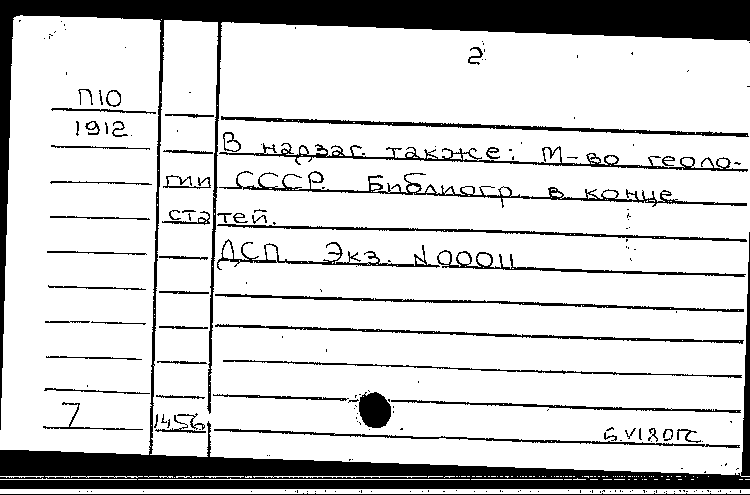 2
П10
1912
В надзаг. также: М-во геоло-
гии СССР. Библиогр. в конце
статей.
ДСП. Экз. N00011
7
1456